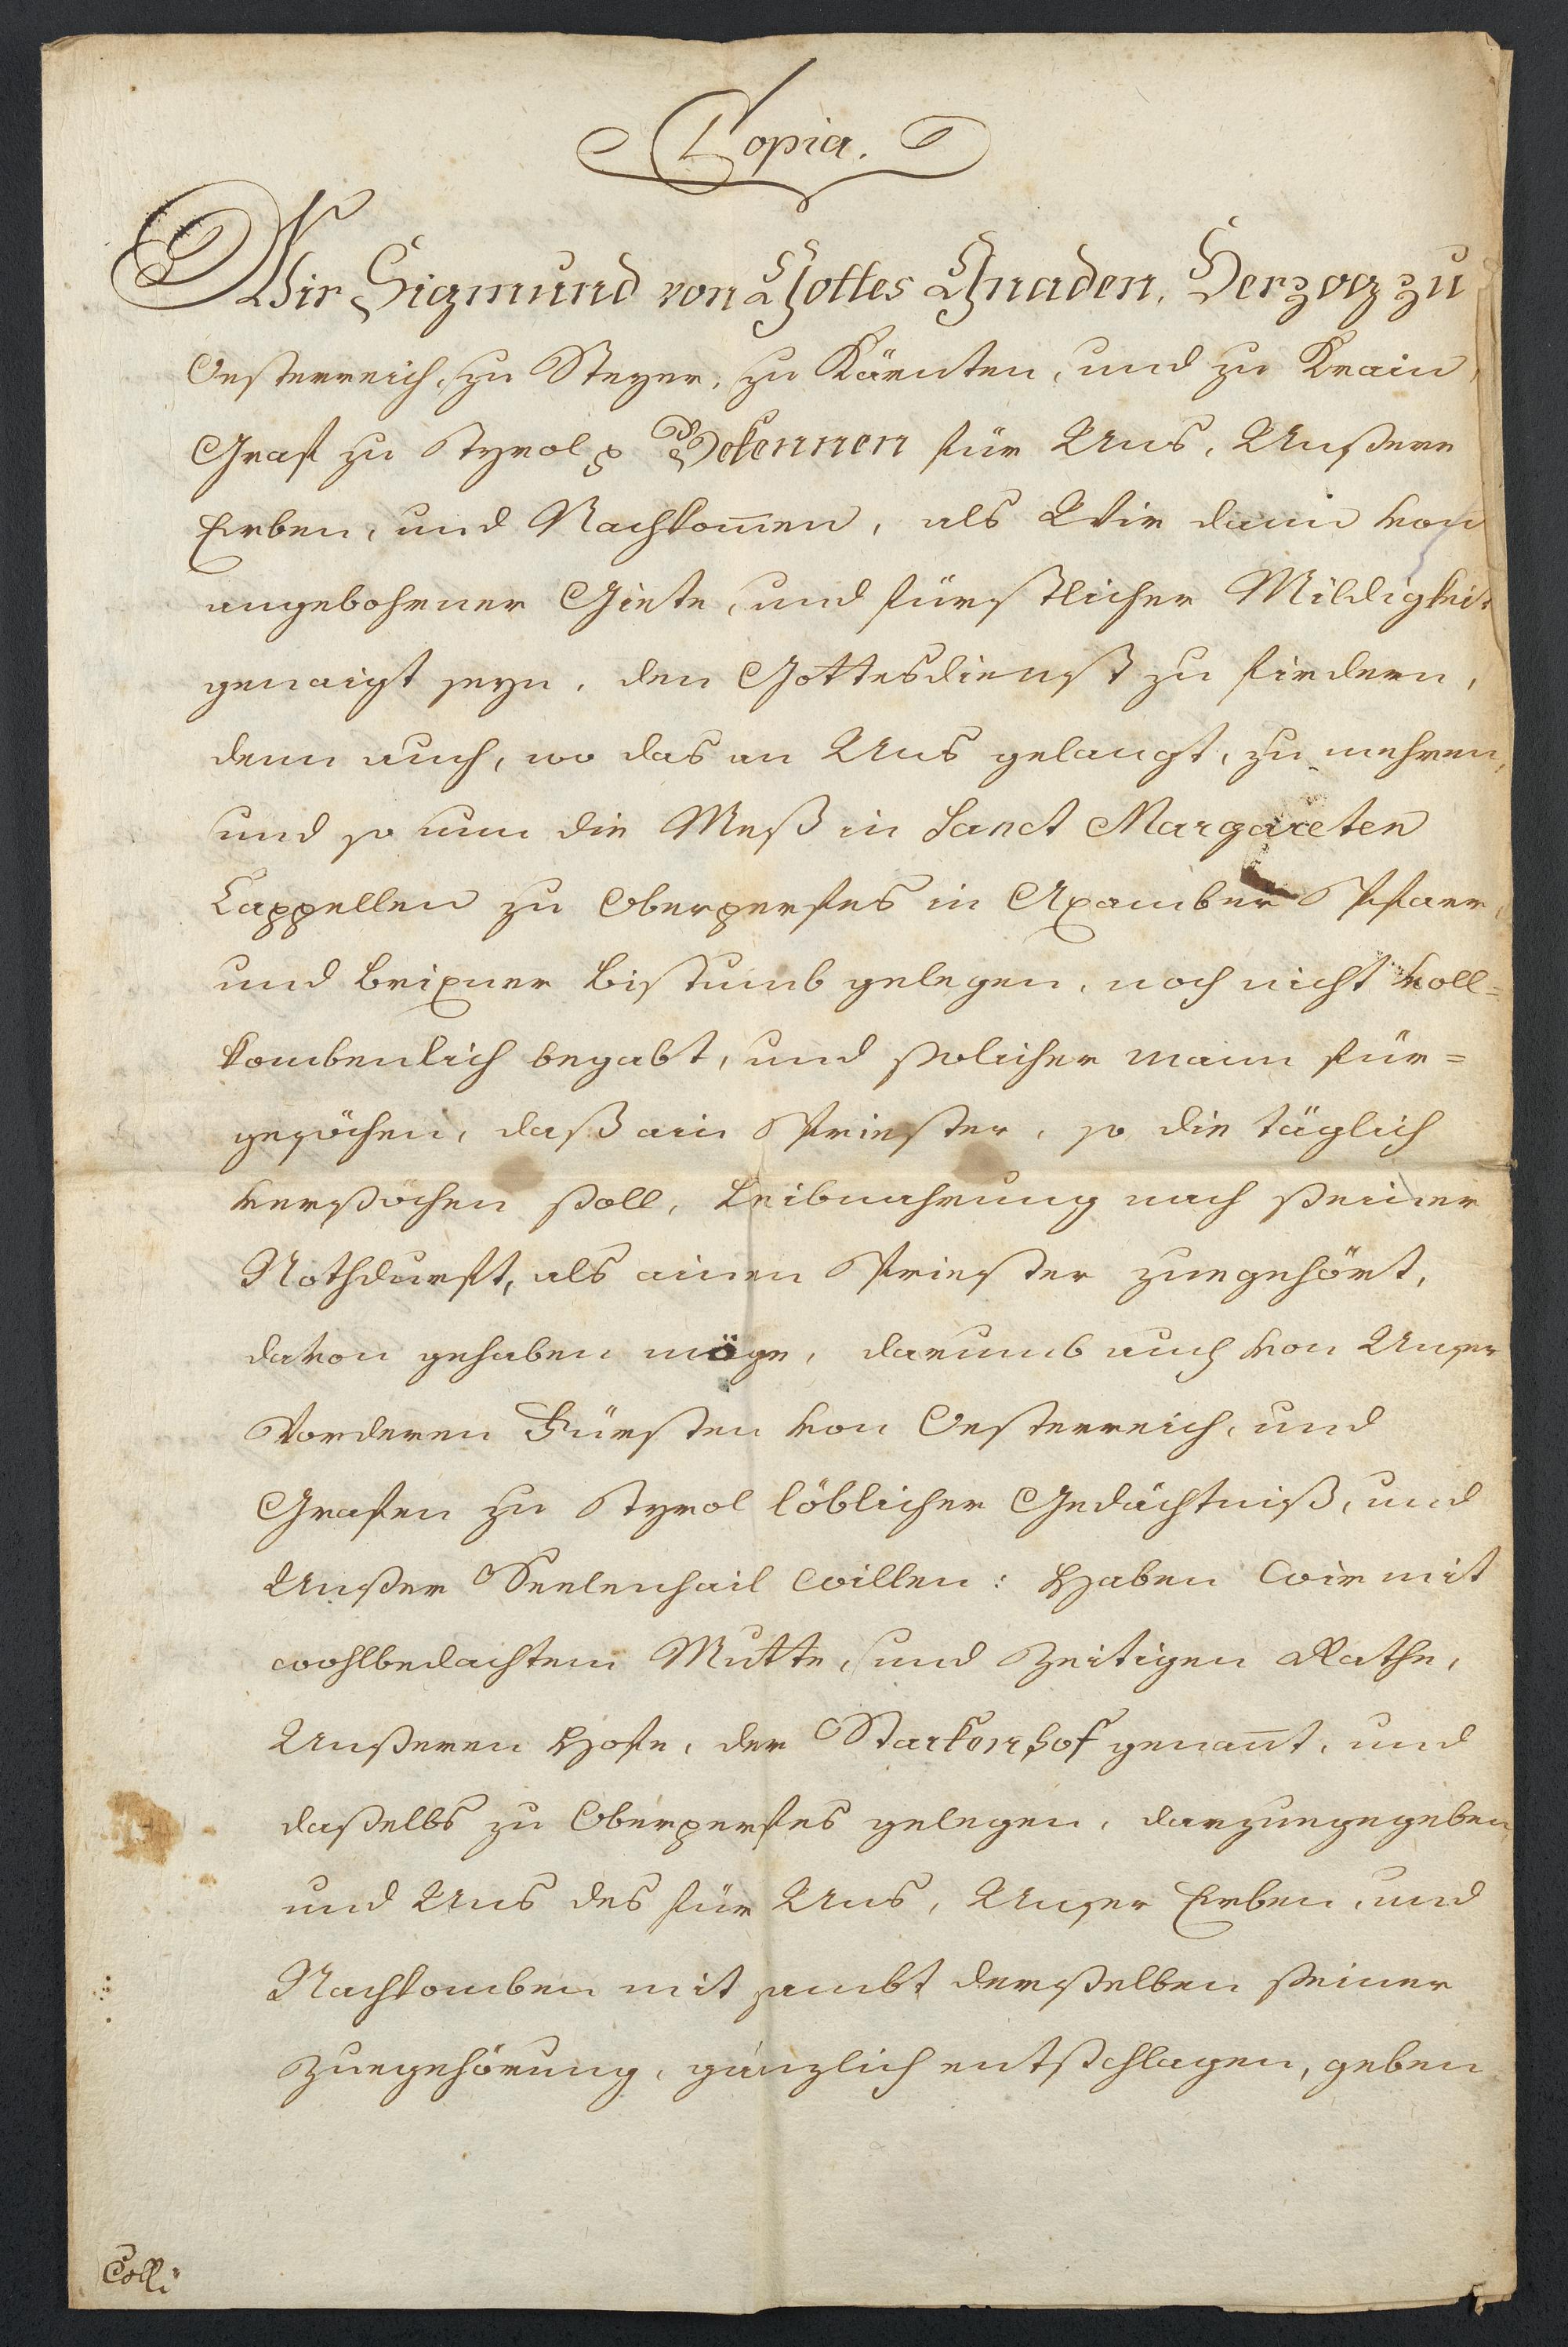 Copia.
Wir Sigmund von Gottes Gnaden, Herzog zu
Oesterreich, zu Steyer, zu Kärnten, und zu Krain,
Graf zu Tyrol Bekennen für Uns, Unßere
Erben, und Nachkom̄en, als Wir dann von
angebohrner Giete, und fürstlicher Mildigkeit
genaigt seyn, den Gottesdienst zu firdern,
denn auch, wo das an Uns gelangt, zu mehren,
und so nun die Meß in Sanct Margareten
Cappellen zu Oberperfes in Axamber Pfarr,
und Brixner Bistumb gelegen, noch nicht voll=
kombenlich begabt, und ßolicher mann für=
gesöchen, daß ain Priester, so die täglich
verßöchen ßoll, Leibnahrung nach ßeiner
Nothdurft, als ainen Priester zuegehört,
davon gehaben möge, darumb auch von Unser
Vorderen Fürsten von Oesterreich, und
Grafen zu Tyrol löblicher Gedächtniß, und
Unßer Seelenhail willen: Haben Wir mit
wohlbedachtem Mutte, und Zeitigen Rathe,
Unßeren Hofe, der Starkenhof genan̄t, und
daßelbs zu Oberperfes gelegen, darzuegegeben,
und Uns des für Uns, Unser Erben, und
Nachkomben mit sambt derßelben ßeiner
Zuegehörung, gänzlich entßchlagen, geben
Colli